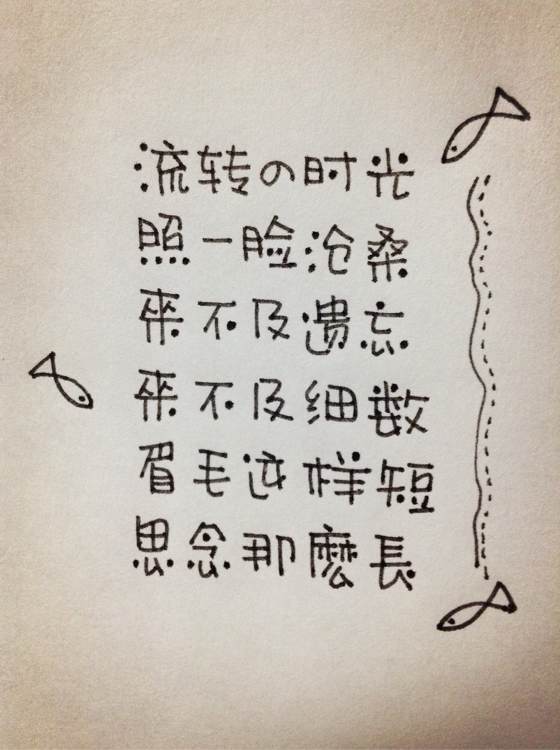 流转の时光
照一脸沧桑
來不及遗忘
來不及细数
眉毛这样短
思念那麼長